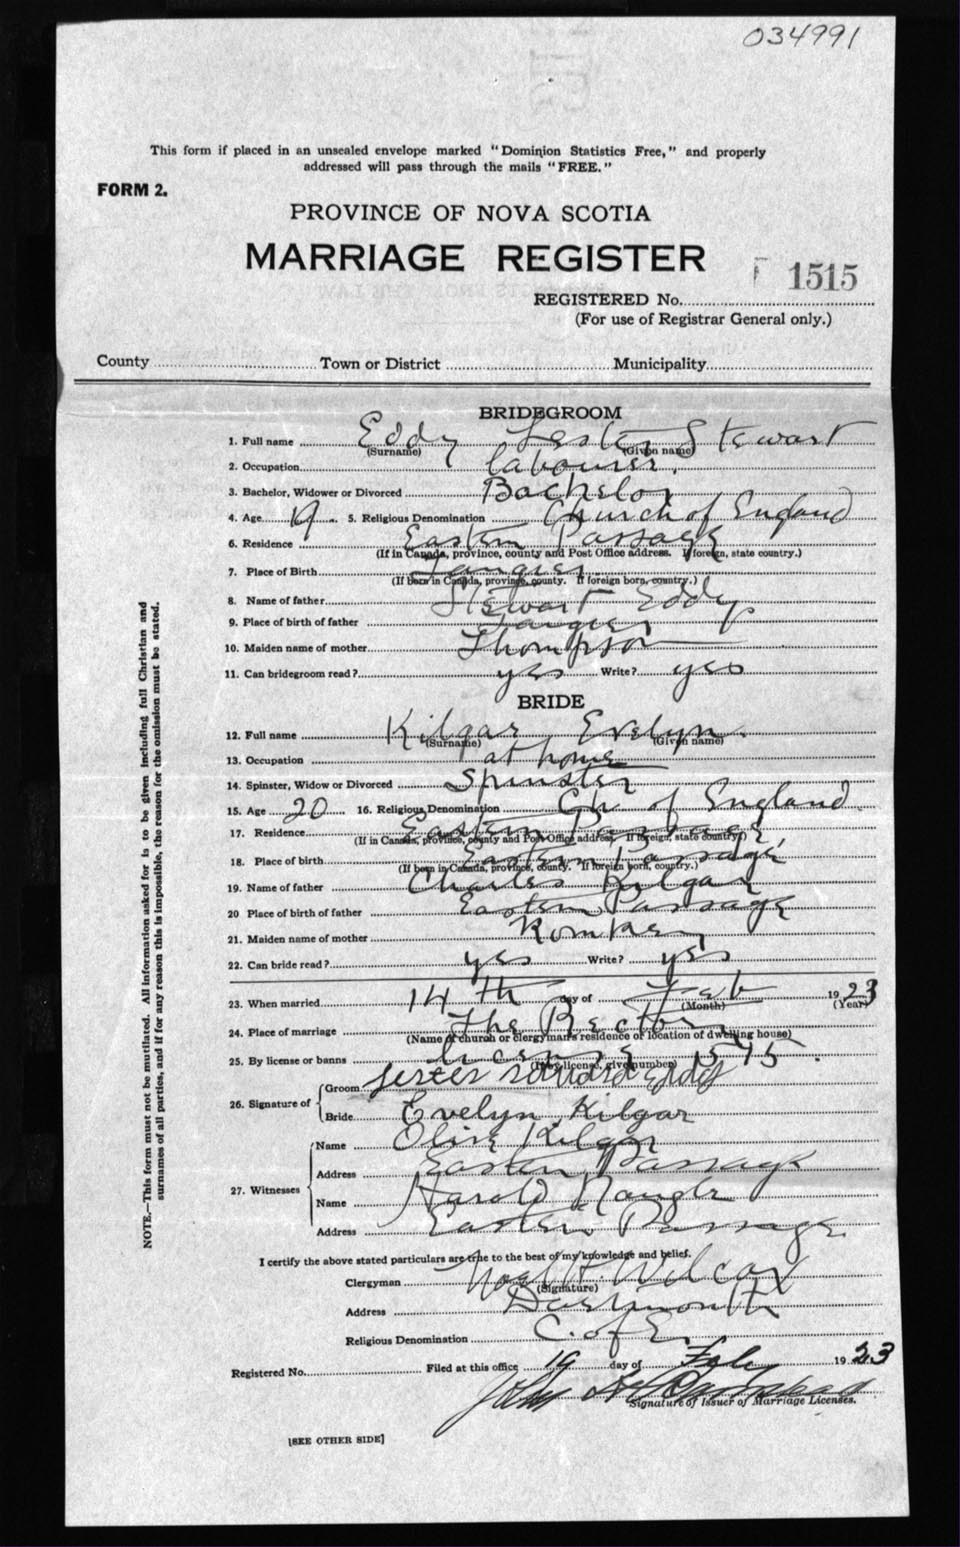 034991
This form if placed in an unsealed envelope marked "Dominion Statistics Free," and properly
addressed will pass through the mails "FREE."
FORM 2.
PROVINCE OF NOVA SCOTIA
MARRIAGE REGISTER
1515
REGISTERED No.
(For use of Registrar General only.)
County Town or District Municipality
BRIDEGROOM
1. Full name Eddy Lester Stewart
(Surname) (Given name)
2. Occupation labourer.
3. Bachelor, Widower or Divorced Bachelor
4. Age 19. 5. Religious Denomination Church of England
6. Residence Eastern Passage
(If in Canada, province, county and Post Office address. If foreign, state country.)
7. Place of Birth Tangier
(If born in Canada, province, county. If foreign born, country.)
8. Name of father Stewart Eddy
9. Place of birth of father Tangier
10. Maiden name of mother Thompson
11. Can bridegroom read? yes Write? yes
BRIDE
12. Full name Kilgar Evelyn.
(Surname) (Given name)
13. Occupation at home
14. Spinster, Widow or Divorced Spinster
15. Age 20 16. Religious Denomination Ch. of England
17. Residence Eastern Passage
(If in Canada, province, county and Post Office address. If foreign, state country.)
18. Place of birth Eastern Passage
(If born in Canada, province, county. If foreign born, country.)
19. Name of father Charles Kilgar
20 Place of birth of father Eastern Passage
21. Maiden name of mother Romkey
22. Can bride read? yes Write? yes
23. When married 14th day of Feb 1923
(Month) (Year)
24. Place of marriage The Rectory
(Name of church or clergyman's residence or location of dwelling house)
25. By license or banns license 1575.
(If by license, give number)
26. Signature of Groom Lester Eddy
Bride Evelyn Kilgar
27. Witnesses Name Olive Kilgar
Address Eastern Passage
Name Harold Naugle
Address Eastern Passage
I certify the above stated particulars are true to the best of my knowledge and belief.
Clergyman Noel H Wilcox
(Signature)
Address Dartmouth
Religious Denomination C. of E.
Registered No. Filed at this office 19 day of Feby 1923
John
Signature of Issuer of Marriage Licenses.
[SEE OTHER SIDE]
NOTE.—This form must not be mutilated. All information asked for is to be given including full Christian and
surnames of all parties, and if for any reason this is impossible, the reason for the omission must be stated.